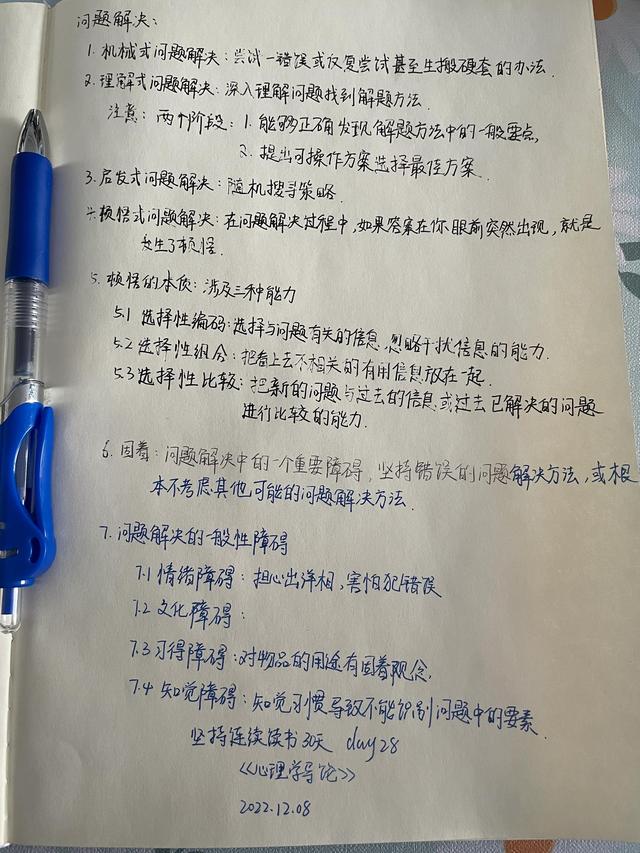 问题解决:
1. 机械式问题解决: 尝试一错误或反复尝试甚至生搬硬套的办法.
2. 理解式问题解决: 深入理解问题找到解题方法.
注意: 两个阶段: 1. 能够正确发现解题方法中的一般要点,
2. 提出可操作方案选择最佳方案.
3. 启发式问题解决: 随机搜寻策略.
顿悟式问题解决: 在问题解决过程中,如果答案在你眼前突然出现,就是
发生了顿悟.
5. 顿悟的本质: 涉及三种能力
5.1 选择性编码: 选择与问题有关的信息,忽略干扰信息的能力.
5.2 选择性组合: 把看上去不相关的有用信息放在一起.
5.3 选择性比较: 把新的问题与过去的信息或过去已解决的问题
进行比较的能力.
6. 固着: 问题解决中的一个重要障碍, 坚持错误的问题解决方法,或根
本不考虑其他可能的问题解决方法.
7. 问题解决的一般性障碍
7.1 情绪障碍: 担心出洋相,害怕犯错误
7.2 文化障碍:
7.3 习得障碍: 对物品的用途有固着观念.
7.4 知觉障碍: 知觉习惯导致不能识别问题中的要素.
坚持连续读书30天 day28
《心理学导论》
2022.12.08